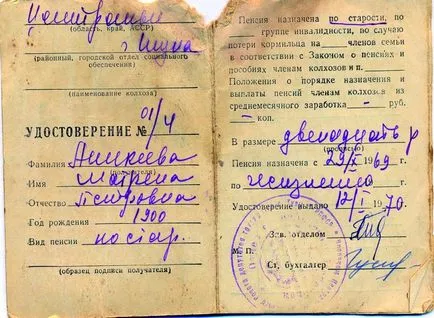 (область, край, АССР)
г
(районный, городской отдел социального
обеспечения)
(наименование колхоза)
01/4
УДОСТОВЕРЕНИЕ №
Фамилия Аникеева
Имя Матрена
Отчество Петровна
Год рождения 1900
Вид пенсии по стар.
(образец подписи получателя)
Пенсия назначена по старости, по
группе инвалидности, по случаю
потери кормильца на членов семьи
в соответствии с Законом о пенсиях и
пособиях членам колхозов и п.
Положения о порядке назначения и
выплаты пенсий членам колхозов из
среднемесячного заработка — руб.
— коп.
В размере двенадцать р
(прописью)
Пенсия назначена с 29/X 1969 г.
по пожизненно 197 г.
Удостоверение выдано 12/I 1970.
Зав. отделом
М. П.
Ст. бухгалтер